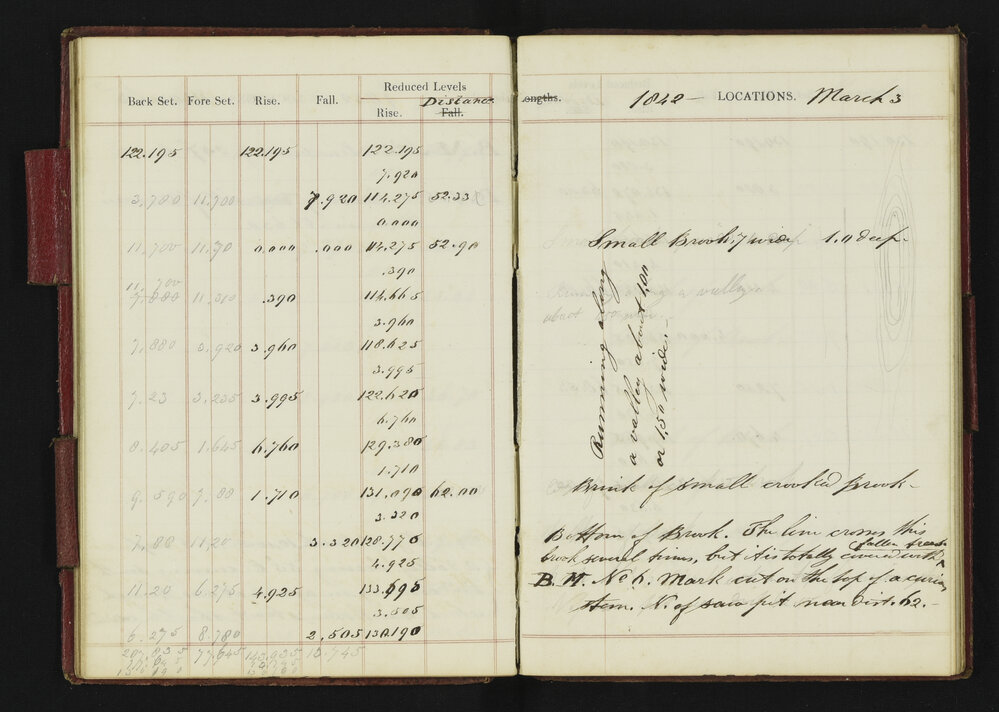 Reduced Levels
Back Set. Fore Set. Rise. Fall. Rise. Distance Fall.
122.195 122.195 122.195
7.920
3,780 11.700 7.920 114.275 52.33
0.000
11,700 11.70 0,000 .000 114.275 52.90
.390
11.700
7.880 11,310 .390 114.665
3.960
7,880 3.920 3.960 118.625
3.995
7.23 3.235 3.995 122.620
6.760
8.405 1.645 6.760 129.380
1.710
9.590 7.88 1.710 131.090 62.00
3.320
7.88 11,20 3.320 128.770
4.925
11.20 6.275 4.925 133.695
3.505
6.275 8.780 2.505 130.190
77.645
13.745
engths. 1842 - LOCATIONS. March 3
Small Brook, 7 wide 1.0 deep.
Running along
a valley about 1,00
or 1,50 wide.-
Brink of small crooked Brook-
Bottom of Brook. The line crosses this
brook several times, but it is totally covered with fallen trees
B.M. No 6. Mark cut on the top of a
stem. N. of saw pit near Dist. 62.-